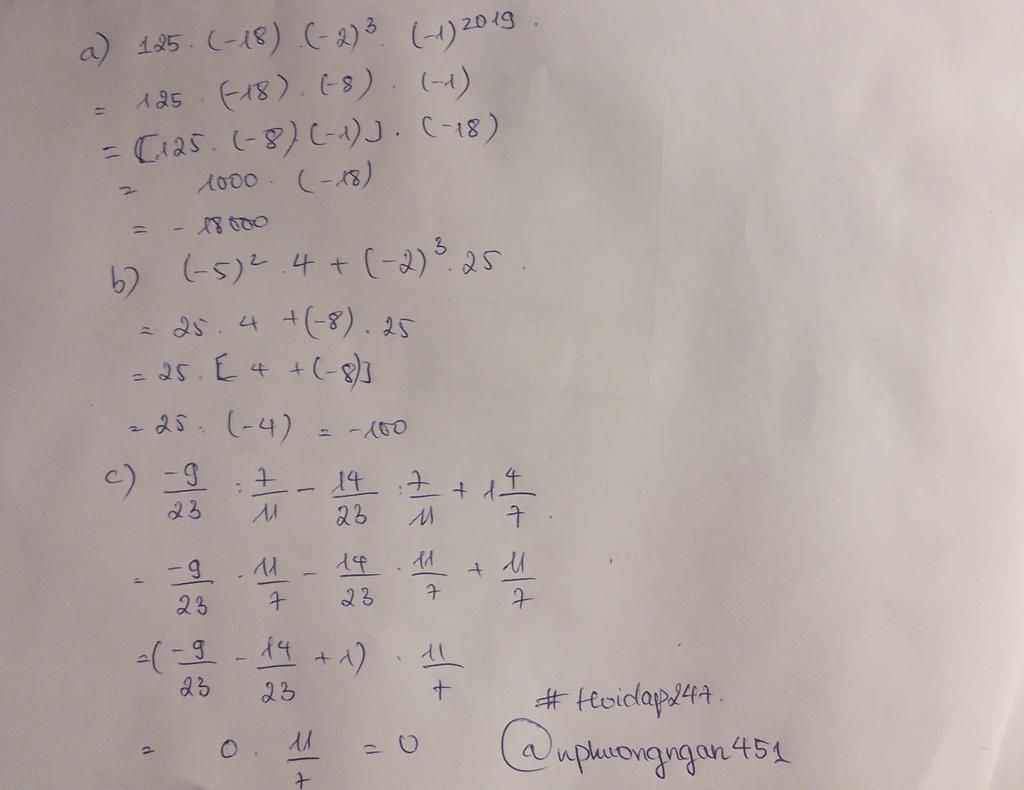 a) 125 . (-18) . (-2)³ . (-1)²⁰¹⁹ .
= 125 . (-18) . (-8) . (-1)
= [125 . (-8) . (-1)] . (-18)
= 1000 . (-18)
= - 18000
b) (-5)² . 4 + (-2)³ . 25 .
= 25 . 4 + (-8) . 25
= 25 . [ 4 + (-8)]
= 25 . (-4) = -100
c) -9/23 : 7/11 - 14/23 : 7/11 + 1 4/7 .
= -9/23 . 11/7 - 14/23 . 11/7 + 11/7
= (-9/23 - 14/23 + 1) . 11/7
= 0 . 11/7 = 0
# Hoidap247.
@nphuongngan451